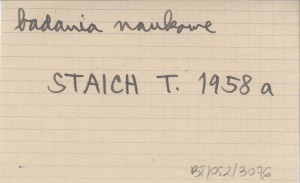 badania naukowe
STAICH T. 1958 a
BT/052/3076